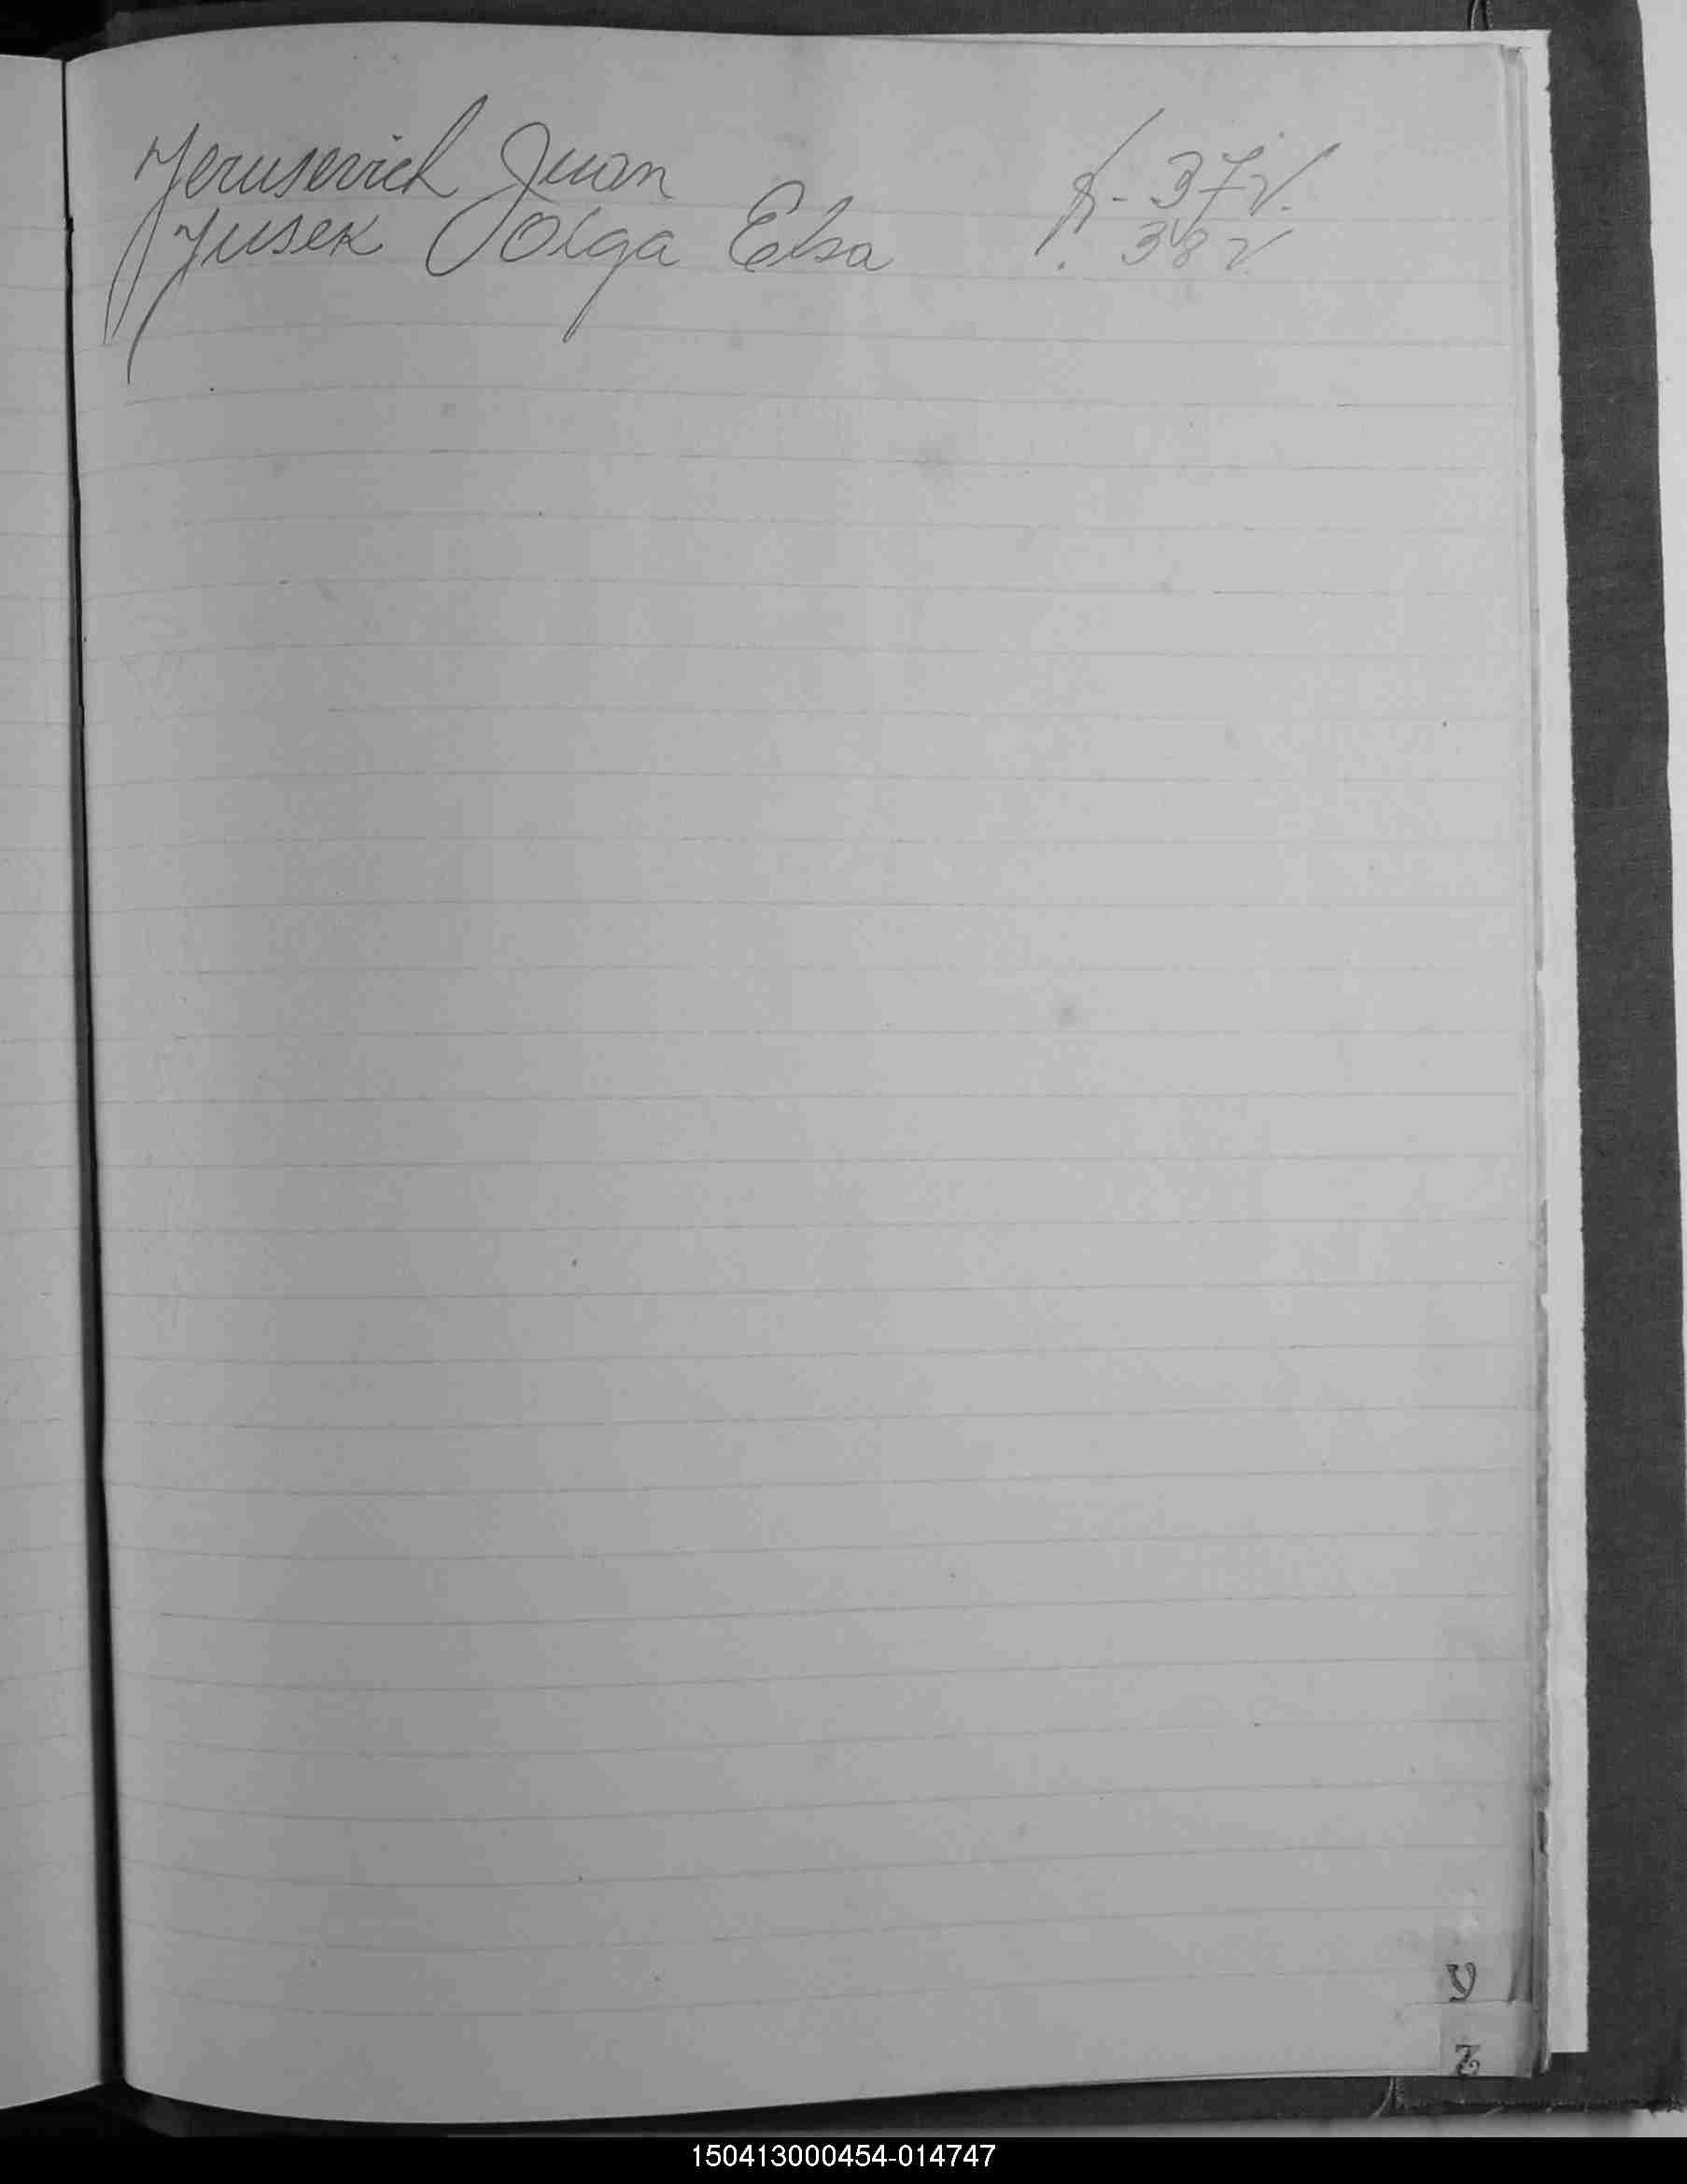 Yerusevich Juan f. 37 v.
Yusek Olga Elsa 38 v
Y
Z
150413000454-014747